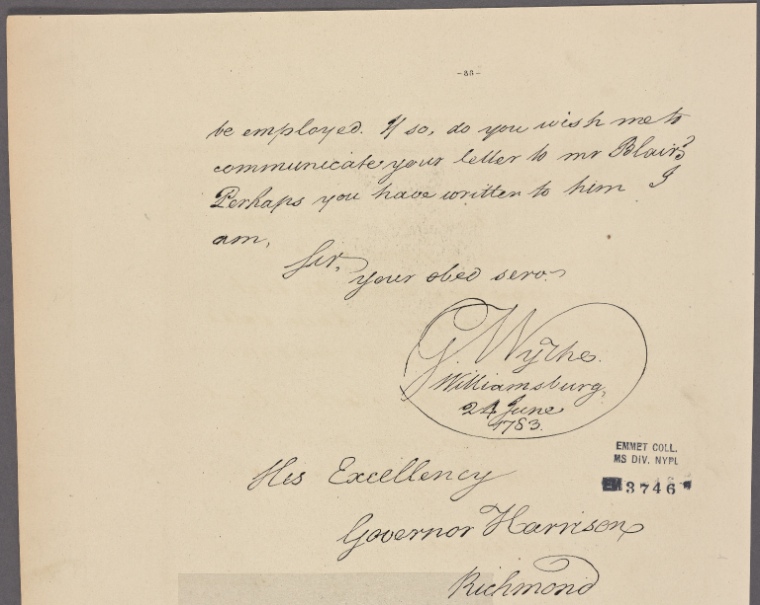 -33-
be employed. If so, do you wish me to
communicate your letter to mr Blair?
Perhaps you have written to him I
am,
Sir,
your obed serv.
G. Wythe.
Williamsburg,
24 June
1783.
EMMET COLL.
MS DIV. NYPL
3746
His Excellency
Governor Harrison
Richmond